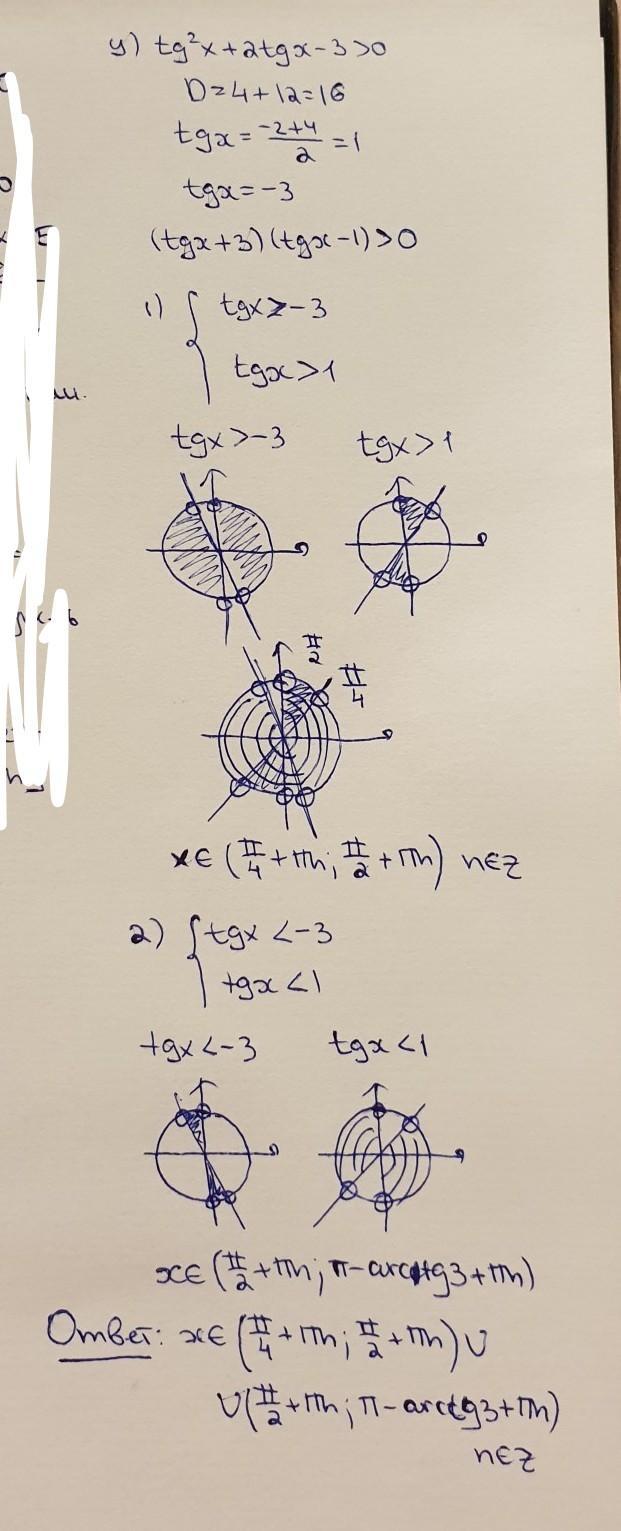 у) tg²x+2tgx-3>0
D=4+12=16
tgx=(-2+4)/2=1
tgx=-3
(tgx+3)(tgx-1)>0
1) { tgx>-3
tgx>1
tgx>-3 tgx>1
π/2
π/4
x∈(π/4+πn; π/2+πn) n∈z
2) { tgx<-3
tgx<1
tgx<-3 tgx<1
x∈(π/2+πn; π-arctg3+πn)
Ответ: x∈(π/4+πn; π/2+πn)∪
∪(π/2+πn; π-arctg3+πn)
n∈z